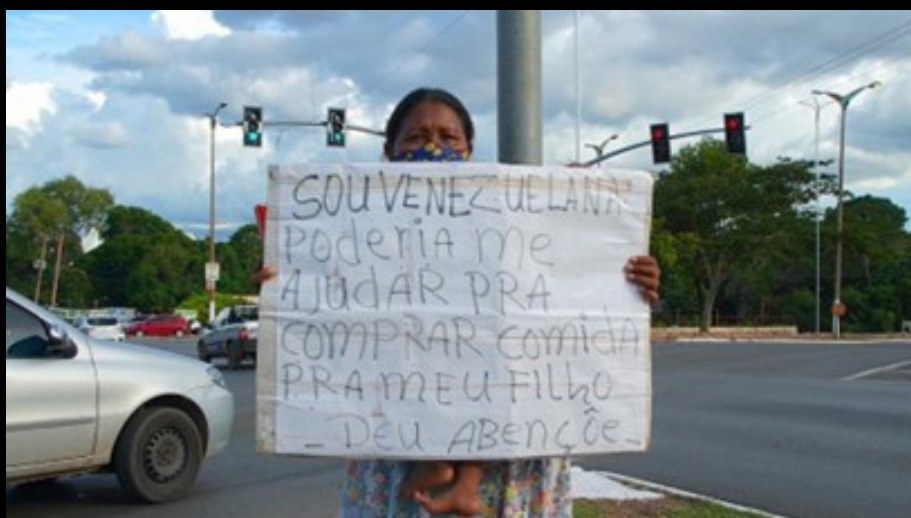 SOU VENEZUELANA
PODERIA ME
AJUDAR PRA
COMPRAR COMIDA
PRA MEU FILHO
- DEU ABENÇÕE -